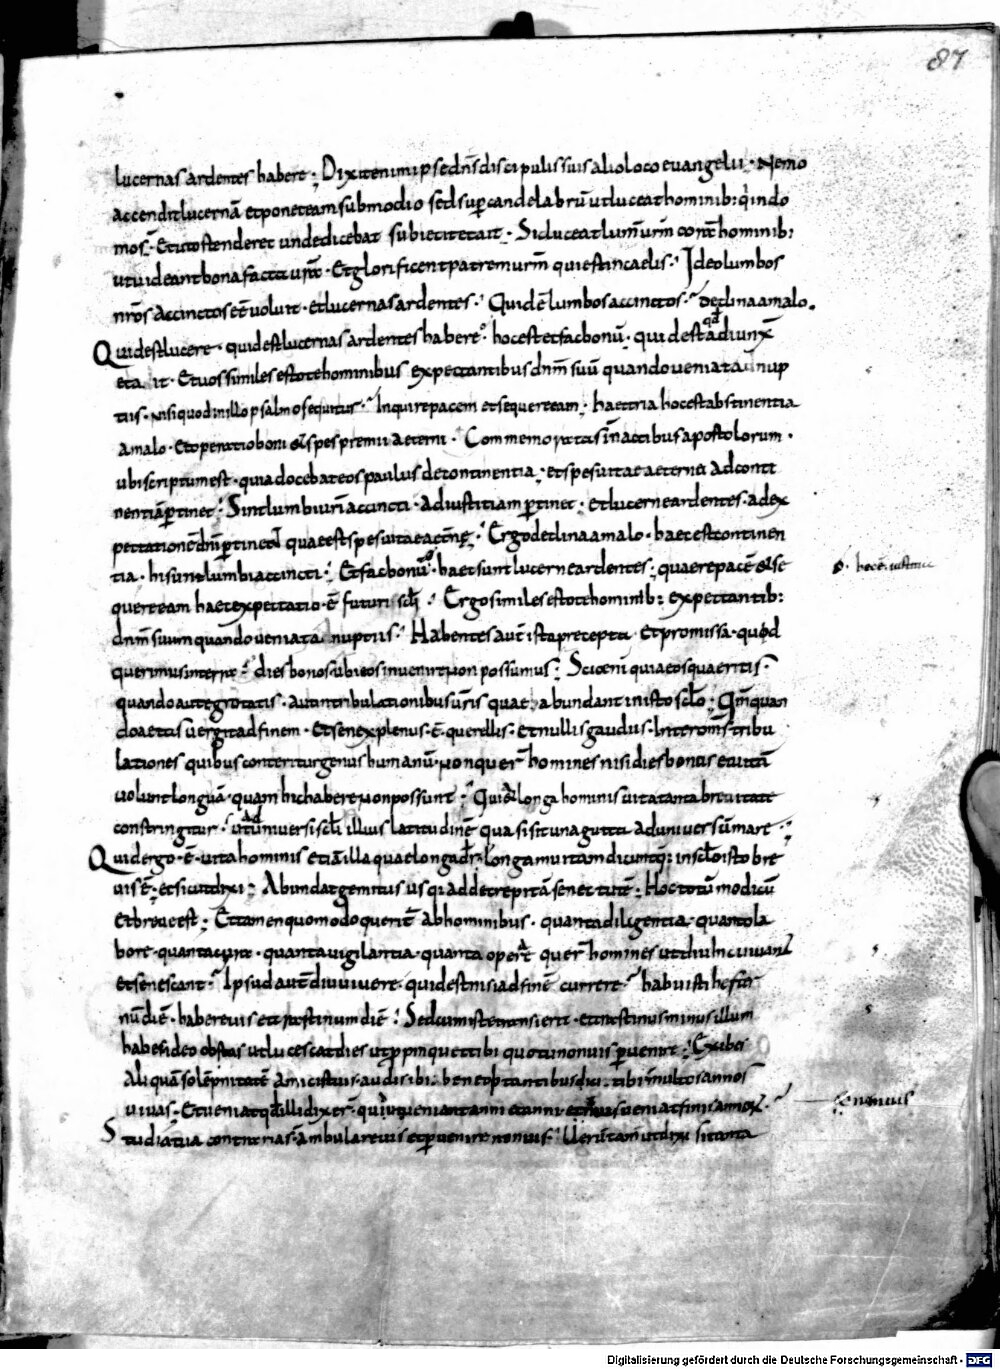 87
lucernas ardentes habere; Dixit enim ipse dn̄s discipulis suis alio loco evangelii · Nemo
accendit lucernā et ponet eam sub modio sed sup candelabrū ut luceat hominib: qui in do
mo s̄. Et ut ostenderet unde dicebat subiecit et ait · Sic luceat lum̄ ur̄m corā hominib:
ut videant bona facta urā · Et glorificent patrem ur̄m qui est in caelis · Ideo lumbos
nr̄os accinctos eē voluit · et lucernas ardentes · Quid ē lumbos accinctos · declina a malo.
Quid est lucere · quid est lucernas ardentes habere · hoc est et fac bonū · quid est qd adiunx̄
et a it · Et vos similes estote hominibus expectantibus dnm̄ suū quando veniat a nup
tiis · nisi quod in illo psalmo sequitur · Inquire pacem et sequere eam · haec tria hoc est abstinentia
a malo · et operatio boni & spes premii aeterni · Commemorata s̄ in actibus apostolorum ·
ubi scriptum est · quia docebat eos paulus de continentia · et spe vitae aeternae Ad conti
nentiā ptinet · Sint lumbi ur̄i accincti · ad iustitiam ptinet · et lucerne ardentes · ad ex
pectationē dn̄i ptinet quae est spes vitae aet̄nę · Ergo declina a malo · haec est continen
tia · hi sunt lumbi accincti · Et fac bonū · haec sunt lucerne ardentes · quaere pacē & se
quere eam haec expectatio · ē futuri scl̄i · Ergo similes estote hominib: expectantib:
dnm̄ suum quando veniat a nuptiis · Habentes aut̄ ista precepta et promissa · quid
querimus in terra · dies bonos ubi eos invenire non possumus · Scio enī quia eos quaeritis ·
quando aut egrotatis · aut in tribulationibus ur̄is quae abundant in isto scl̄o · Qm̄ quan
do aetas vergit ad finem · Et senex plenus · ē · querellis · et nullis gaudiis · Inter om̄s tribu
lationes quibus conteritur genus humanū · non quer̄ homines nisi dies bonos et vitā
volunt longuā · quam hic habere non possunt · Quid & longa hominis vita tanta brevitate
constringitur · ut ad universi scl̄i illius latitudinē quasi sit una gutta ad universū mare ·
Quid ergo · ē · vita hominis etiā illa quae longa dr̄ · longam vitam dicunt quę in scl̄o isto bre
vis ē · et sicut dixi · Abundat gemitus usq: ad decrepitā senectutē · Hoc totū modicū
et breve est · Et tamen quomodo querit̄ ab hominibus · quanta diligentia · quanto la
bore · quanta cura · quanta vigilantia · quanta opera quer̄ homines ut diu hic vivant
et senescant · Ipsud aut̄ diu vivere · quid est nisi ad finē currere · habuisti hester
nū diē · habere vis et crastinum diē · Sed cum iste transierit · et crastinus minus illum
habes · ideo optas ut lucescat dies ut ppinquet tibi quo tu non vis pvenire · Exibes
aliquā solēpnitatē amicis tuis · audis ibi · bene optantibus dici tibi multos annos
vivas · Et veniat qd illi dixer̄ · qui veniant anni et anni et finis veniat finis annorū ·
Studia tua contraria s̄ · ambulare vis et pvenire non vis · Verū tam̄ ut dixi si tanta
Digitalisierung gefördert durch die Deutsche Forschungsgemeinschaft - DFG